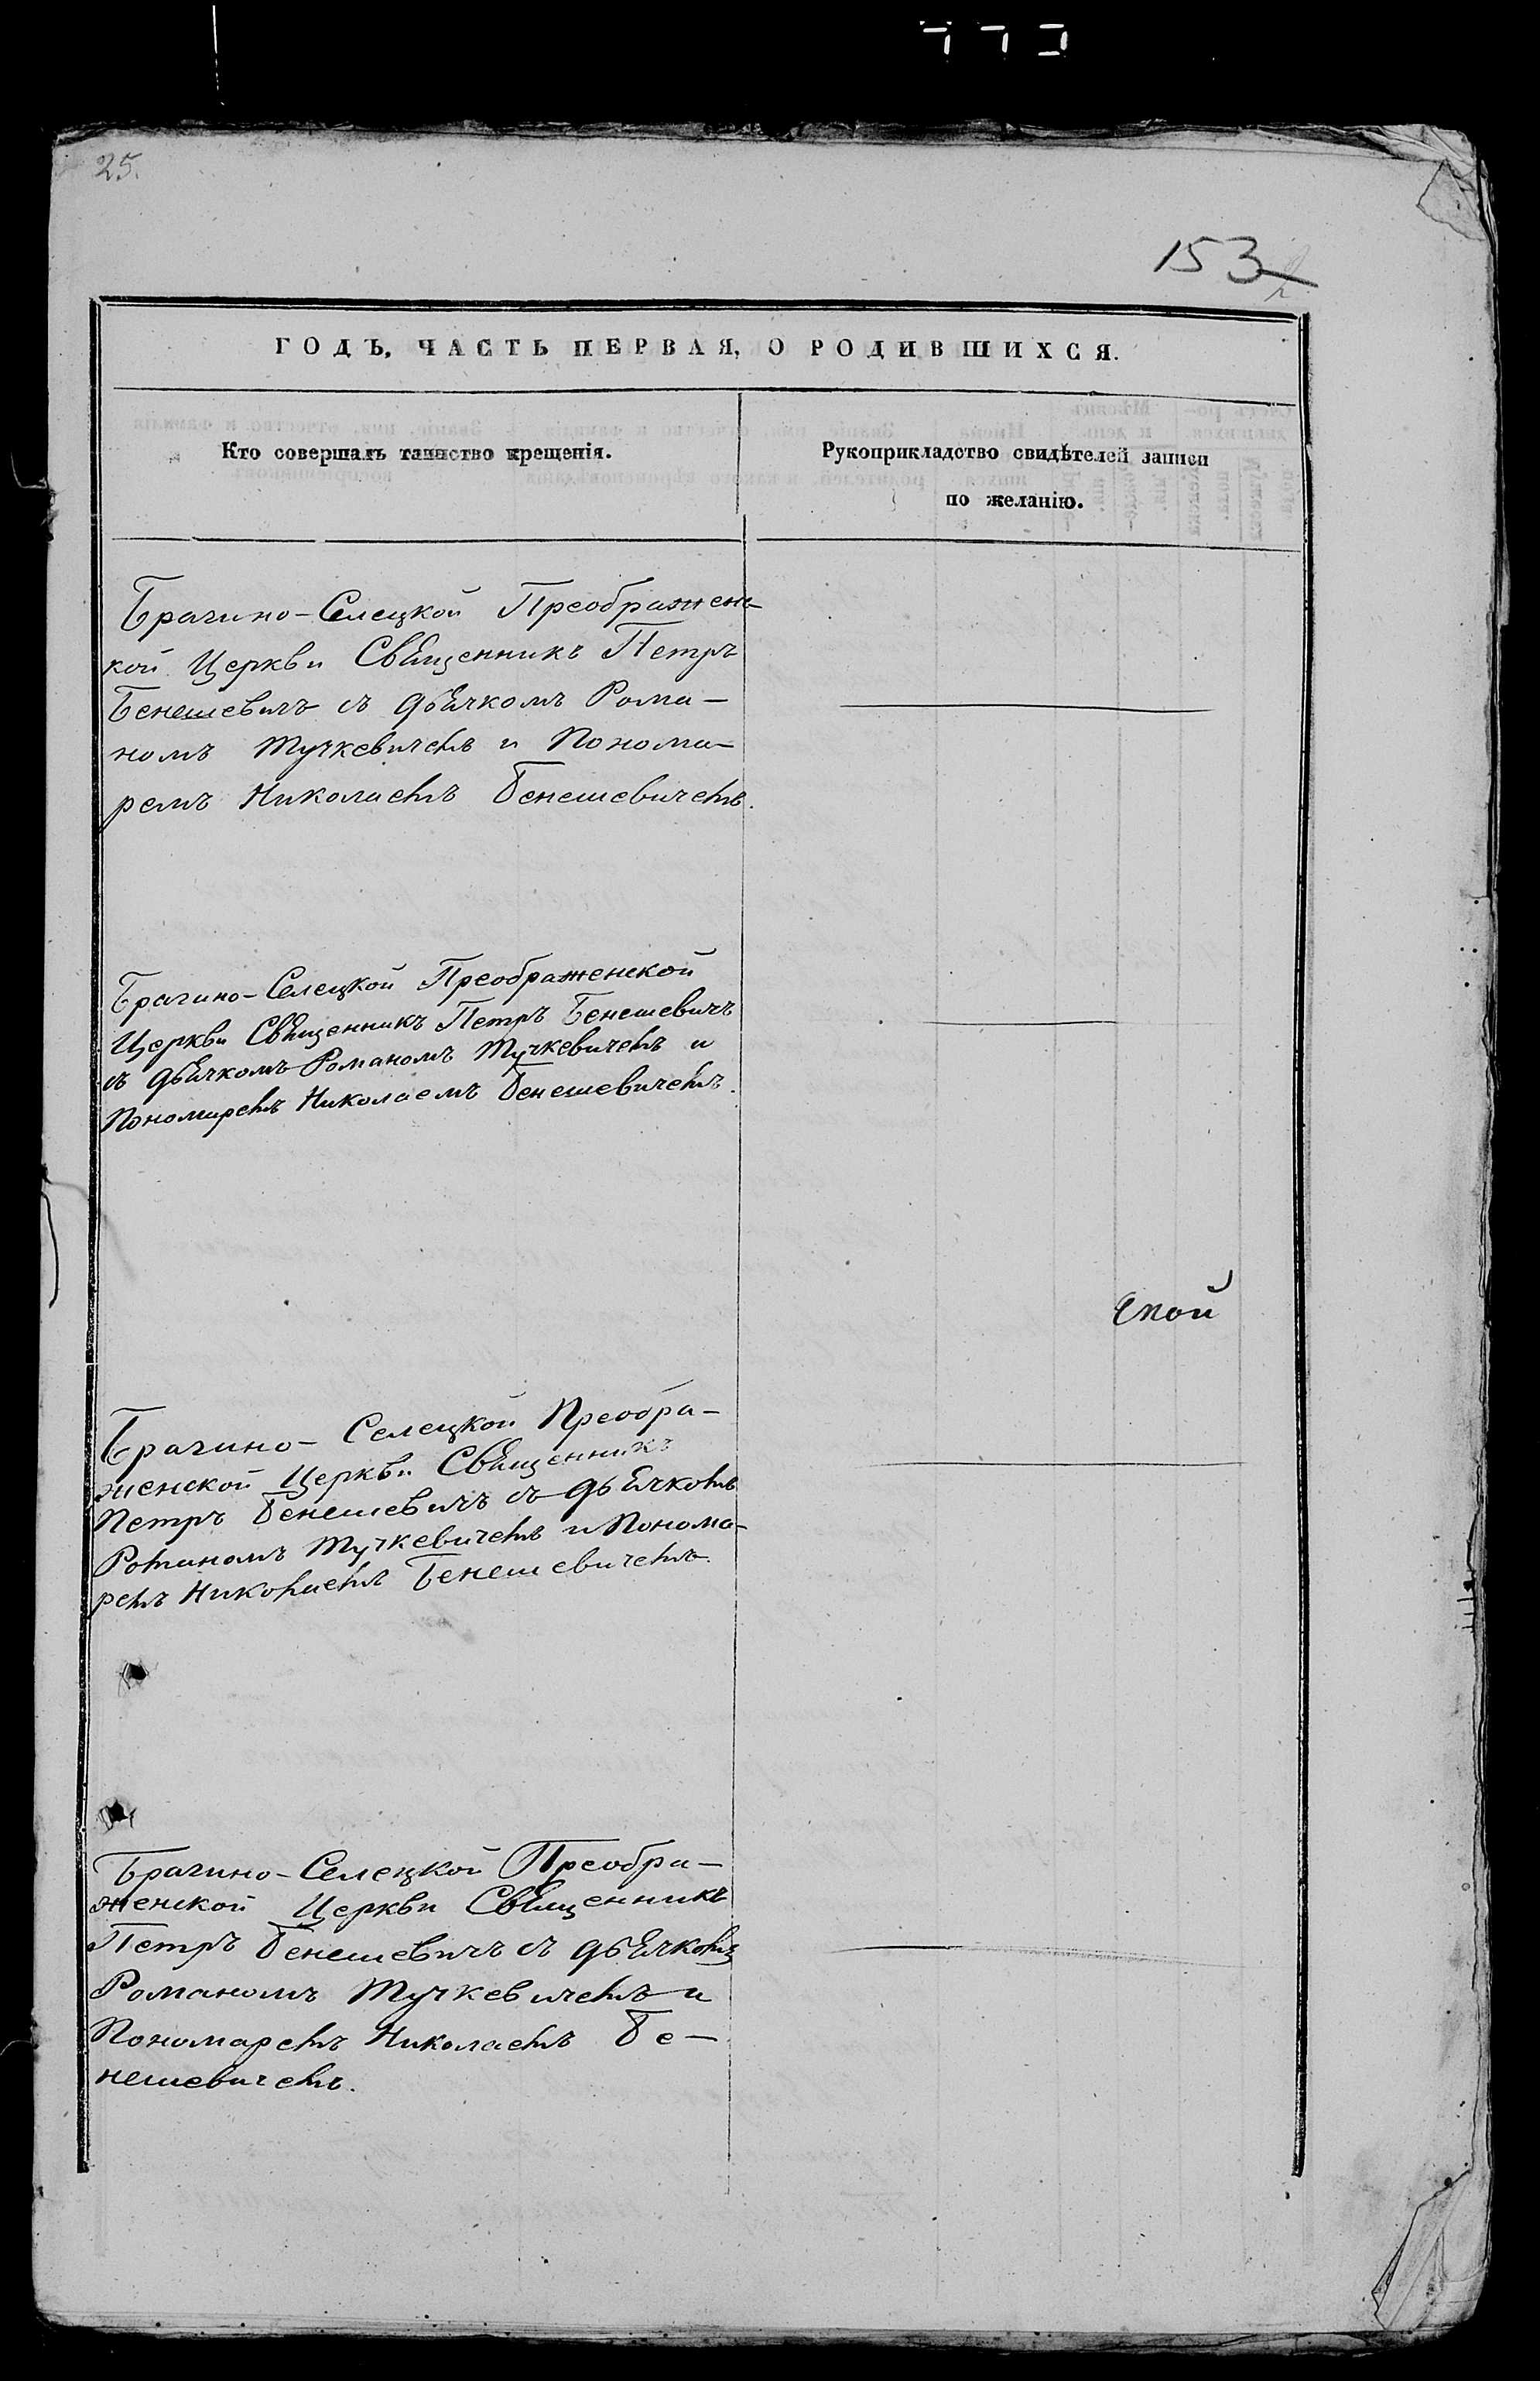 25.
153
ГОДЪ, ЧАСТЬ ПЕРВАЯ, О РОДИВШИХСЯ.
Кто совершалъ таинство крещенія.
Рукоприкладство свидѣтелей записи
по желанію.
Брагино-Селецкой Преображенс-
кой Церкви Священникъ Петръ
Бенешевичъ съ дьячкомъ Рома-
номъ Тучкевичемъ и Понома-
ремъ Николаемъ Бенешевичемъ.
Брагино-Селецкой Преображенской
Церкви Священникъ Петръ Бенешевичъ
съ дьячкомъ Романомъ Тучкевичемъ и
Пономаремъ Николаемъ Бенешевичемъ.
Брагино-Селецкой Преобра-
женской Церкви Священникъ
Петръ Бенешевичъ съ дьячкомъ
Романомъ Тучкевичемъ и Понома-
ремъ Николаемъ Бенешевичемъ.
Брагино-Селецкой Преобра-
женской Церкви Священникъ
Петръ Бенешевичъ съ дьячкомъ
Романомъ Тучкевичемъ и
Пономаремъ Николаемъ Бе-
нешевичемъ.